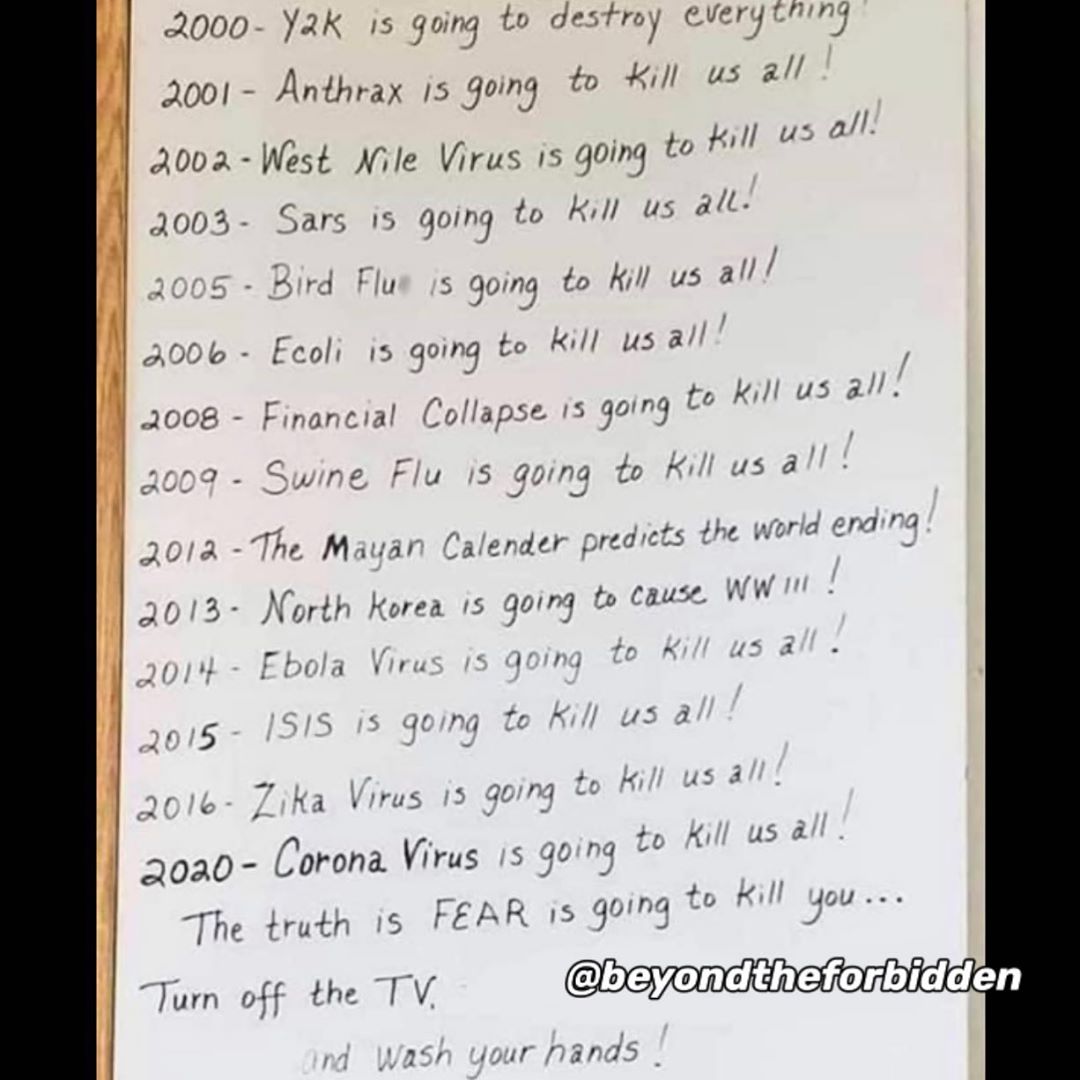 2000- Y2K is going to destroy everything!
2001 - Anthrax is going to kill us all!
2002 - West Nile Virus is going to kill us all!
2003 - Sars is going to kill us all!
2005 - Bird Flu is going to kill us all!
2006 - Ecoli is going to kill us all!
2008 - Financial Collapse is going to kill us all!
2009 - Swine Flu is going to kill us all!
2012 - The Mayan Calender predicts the world ending!
2013 - North Korea is going to cause WW III!
2014 - Ebola Virus is going to kill us all!
2015 - ISIS is going to kill us all!
2016 - Zika Virus is going to kill us all!
2020 - Corona Virus is going to kill us all!
The truth is FEAR is going to kill you...
@beyondtheforbidden
Turn off the TV.
and wash your hands!